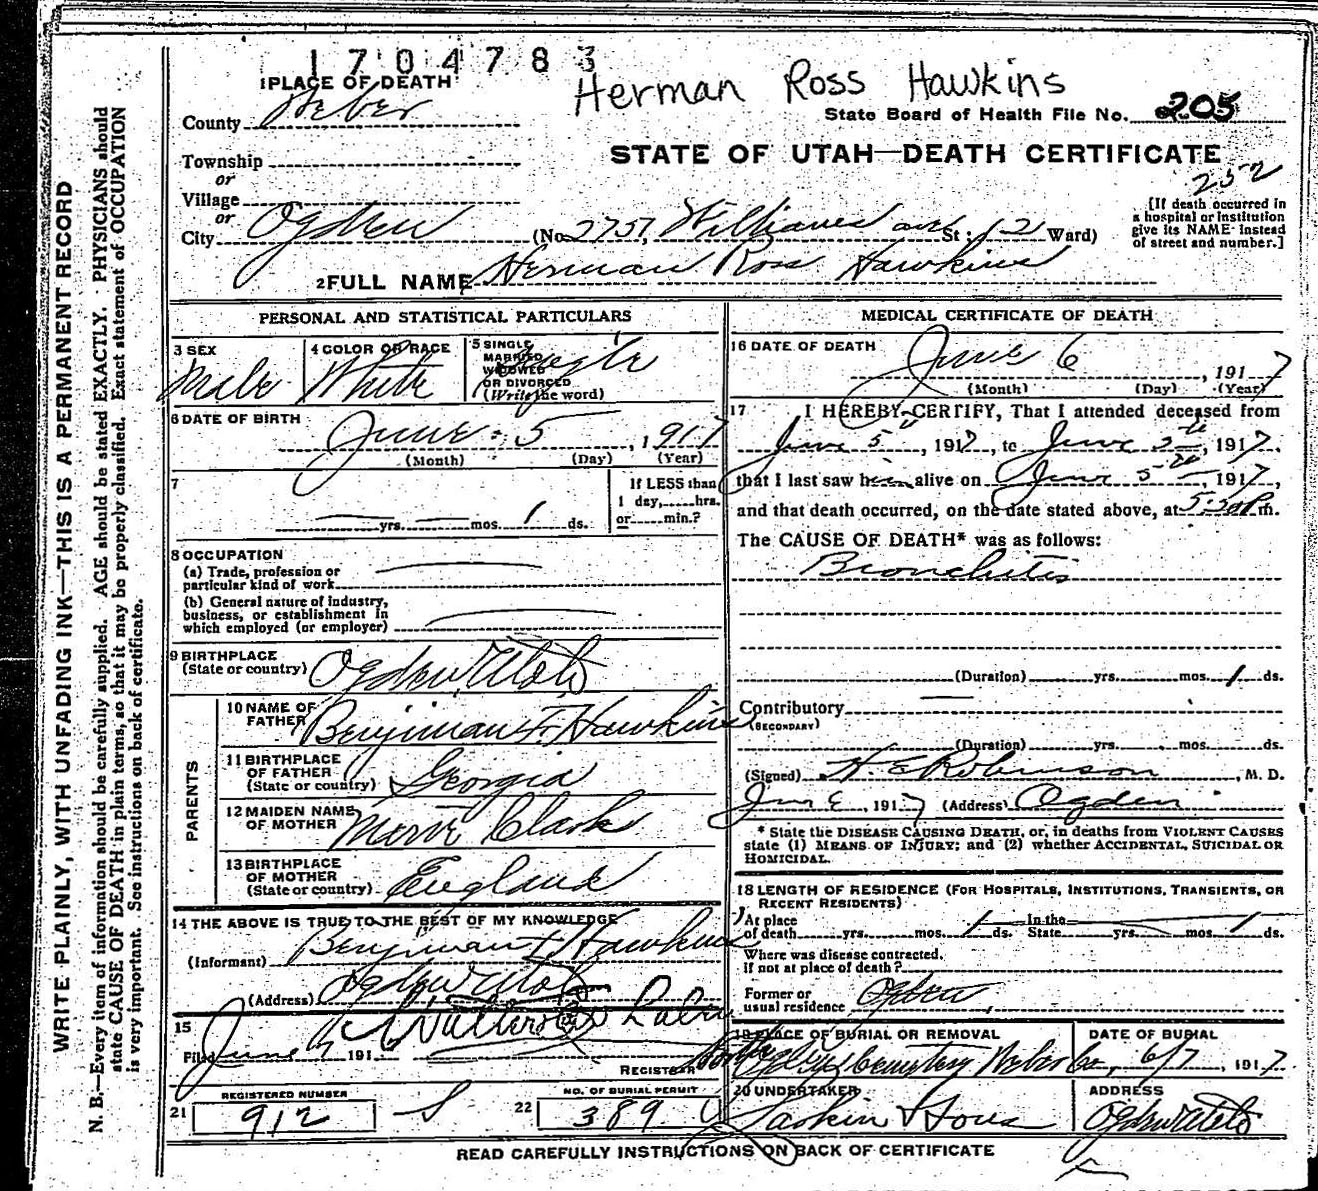 1704783
Herman Ross Hawkins
1 PLACE OF DEATH
County Weber
State Board of Health File No. 205
Township
STATE OF UTAH—DEATH CERTIFICATE
or
252
Village
or
City Ogden (No. 2757, Williams av St; 12 Ward)
[If death occurred in
a hospital or institution
give its NAME instead
of street and number.]
2 FULL NAME Herman Ross Hawkins
PERSONAL AND STATISTICAL PARTICULARS
3 SEX
Male
4 COLOR OR RACE
White
5 SINGLE
MARRIED
WIDOWED
OR DIVORCED
(Write the word)
Single
6 DATE OF BIRTH
June 5, 1917
(Month) (Day) (Year)
7
If LESS than
1 day, hrs.
or min.?
yrs. mos. 1 ds.
8 OCCUPATION
(a) Trade, profession or
particular kind of work
(b) General nature of industry,
business, or establishment in
which employed (or employer)
9 BIRTHPLACE
(State or country) Ogden Utah
PARENTS
10 NAME OF
FATHER Benjiman F. Hawkins
11 BIRTHPLACE
OF FATHER
(State or country) Georgia
12 MAIDEN NAME
OF MOTHER Clark
13 BIRTHPLACE
OF MOTHER
(State or country) England
14 THE ABOVE IS TRUE TO THE BEST OF MY KNOWLEDGE
(Informant) Benjiman F Hawkins
(Address) Ogden Utah
15
Filed June 191
REGISTRAR
REGISTERED NUMBER
21 912 S
NO. OF BURIAL PERMIT
22 389
MEDICAL CERTIFICATE OF DEATH
16 DATE OF DEATH
June 6, 1917
(Month) (Day) (Year)
17 I HEREBY CERTIFY, That I attended deceased from
June 5", 1917, to June 5th, 1917,
that I last saw him alive on June 5th, 1917,
and that death occurred, on the date stated above, at 5.30P m.
The CAUSE OF DEATH* was as follows:
Bronchitis
(Duration) yrs. mos. 1 ds.
Contributory
(SECONDARY)
(Duration) yrs. mos. ds.
(Signed) H. E Robinson, M. D.
Jun 6, 1917 (Address) Ogden
* State the DISEASE CAUSING DEATH, or, in deaths from VIOLENT CAUSES
state (1) MEANS OF INJURY; and (2) whether ACCIDENTAL, SUICIDAL OR
HOMICIDAL.
18 LENGTH OF RESIDENCE (FOR HOSPITALS, INSTITUTIONS, TRANSIENTS, OR
RECENT RESIDENTS)
At place
of death yrs. mos. 1 ds. In the
State yrs. mos. 1 ds.
Where was disease contracted,
if not at place of death?
Former or
usual residence Ogden
19 PLACE OF BURIAL OR REMOVAL
Ogden Cemetery Weber Co,
DATE OF BURIAL
6/7, 1917
20 UNDERTAKER
Larkin & Sons
ADDRESS
Ogden Utah
READ CAREFULLY INSTRUCTIONS ON BACK OF CERTIFICATE
WRITE PLAINLY, WITH UNFADING INK—THIS IS A PERMANENT RECORD
N. B.—Every item of information should be carefully supplied. AGE should be stated EXACTLY. PHYSICIANS should
state CAUSE OF DEATH in plain terms, so that it may be properly classified. Exact statement of OCCUPATION
is very important. See instructions on back of certificate.